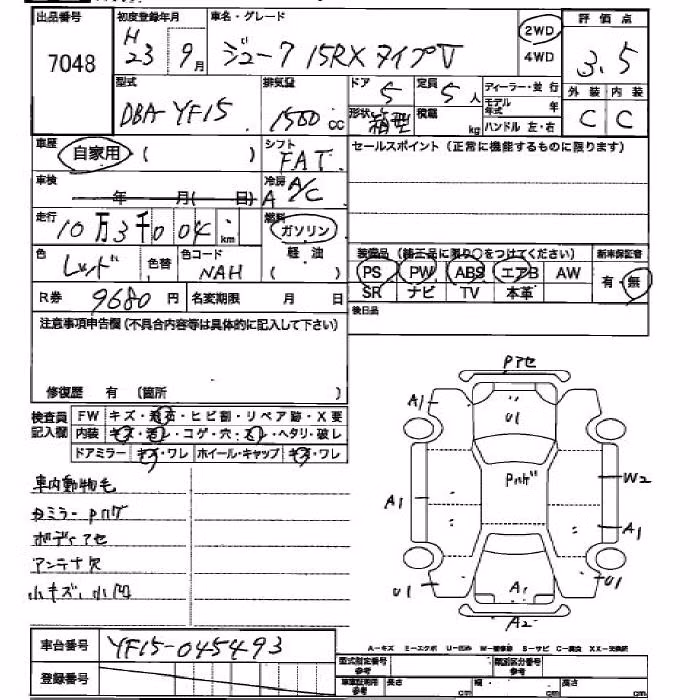 出品番号 初度登録年月 車名・グレード 評価点
7048 H23 9月 ジューク 15RX タイプV 2WD 4WD 3.5
型式 排気量 ドア 定員 ディーラー・並行 外装 内装
DBA-YF15 1500cc 5 5人 モデル年式 年 C C
形状 箱型 積載 kg ハンドル 左・右
車歴 自家用 ( ) シフト FAT セールスポイント(正常に機能するものに限ります)
車検 年 月( 日) 冷房 A A/C
走行 10万3千004km 燃料 ガソリン
色 レッド 色替 色コード NAH 軽油 ( )
装備品(純正品に限り○をつけてください) 新車保証書
PS PW ABS エアB AW 有・無
SR ナビ TV 本革
R券 9680円 名変期限 月 日 後日品
注意事項申告欄(不具合内容等は具体的に記入して下さい)
修復歴 有 (箇所 )
検査員記入欄 FW キズ・飛石・ヒビ割・リペア跡・X要
内装 キズ・汚レ・コゲ・穴・スレ・ヘタリ・破レ
ドアミラー キズ・ワレ ホイール・キャップ キズ・ワレ
車内動物毛
カミラー Pハゲ
ボディアセ
アンテナ欠
小キズ、小凹
Pアセ
A1
U1
Pハゲ
W2
A1
A1
U1
A1
U1
A2
車台番号 YF15-045493
登録番号
A-キズ E-エクボ U-凹み W-補修跡 S-サビ C-腐食 XX-交換済
型式指定番号 参考 類別区分番号 参考
車庫証明用 参考 長さ cm 幅 cm 高さ cm